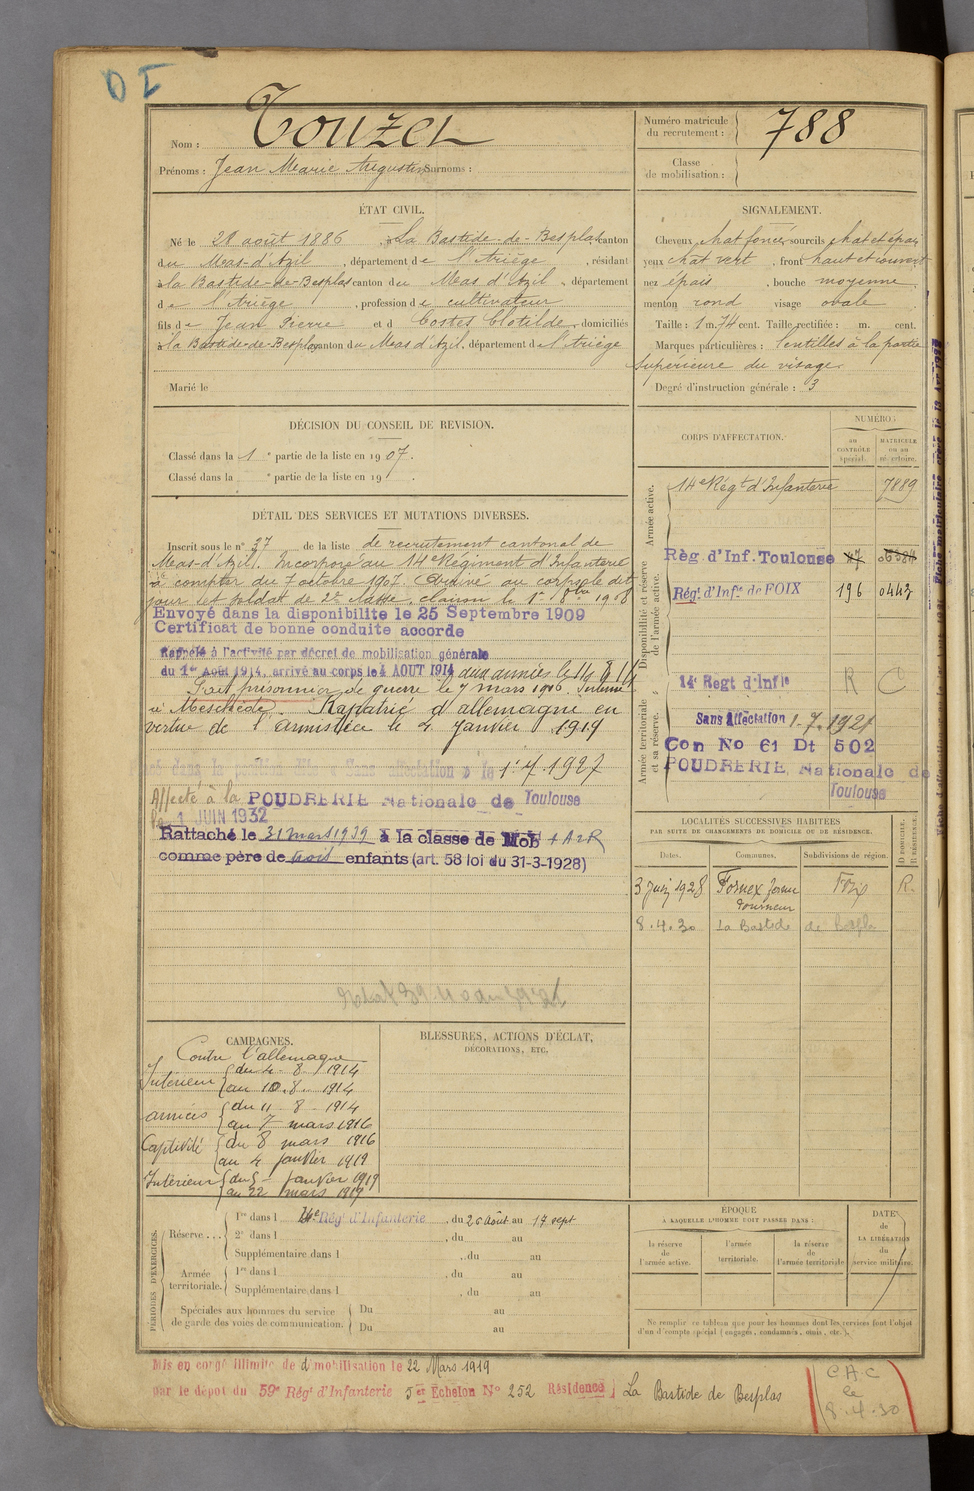 D I
Nom : Touzet
Prénoms : Jean Marie Augustin Surnoms :
Numéro matricule
du recrutement : 788
Classe
de mobilisation :
ÉTAT CIVIL.
Né le 28 août 1886, à La Bastide-de-Besplas canton
du Mas-d'Azil, département de l'Ariège, résidant
à la Bastide-de-Besplas canton du Mas d'Azil, département
de l'Ariège, profession de cultivateur
fils de Jean Pierre et d Costes Clotilde, domiciliés
à la Bastide-de-Besplas canton du Mas d'Azil, département de l'Ariège
Marié le
SIGNALEMENT.
Cheveux chat foncé sourcils chat et épais
yeux chat vert, front haut et ouvert
nez épais, bouche moyenne
menton rond visage ovale
Taille : 1 m. 74 cent. Taille rectifiée : m. cent.
Marques particulières : lentilles à la partie
supérieure du visage
Degré d'instruction générale : 3
DÉCISION DU CONSEIL DE REVISION.
Classé dans la 1 e partie de la liste en 1907.
Classé dans la e partie de la liste en 19 .
DÉTAIL DES SERVICES ET MUTATIONS DIVERSES.
Inscrit sous le n° 37 de la liste de recrutement cantonal de
Mas-d'Azil. Incorporé au 14e Régiment d'Infanterie
à compter du 7 octobre 1907. Arrivé au corps le dit
jour et soldat de 2e classe, clairon le 1er 8bre 1908
Envoyé dans la disponibilité le 25 Septembre 1909
Certificat de bonne conduite accordé
Rappelé à l'activité par décret de mobilisation générale
du 1er Août 1914, arrivé au corps le 4 AOUT 1914 aux armées le 11 8 14
Fait prisonnier de guerre le 7 mars 1916. Interné
à Meschède. Rapatrié d'allemagne en
vertu de l'armistice le 4 janvier 1919
dans la position dite « Sans affectation » le 1.7.1927
Affecté à la POUDRERIE Nationale de Toulouse
le 1 JUIN 1932
Rattaché le 31 mars 1939 à la classe de Mob + A2R
comme père de trois enfants (art. 58 loi du 31-3-1928)
CORPS D'AFFECTATION.
NUMÉROS
au
CONTRÔLE
spécial.
MATRICULE
ou au
répertoire.
Armée active.
14e Régt d'Infanterie 7889
Disponibilité et réserve
de l'armée active.
Règ. d'Inf. Toulouse 47
Régt. d'Infie de FOIX 196 0443
Armée territoriale
et sa réserve.
14e Règt d'Infie R C
Sans Affectation 1.7.1927
Con No 61 Dt 502
POUDRERIE Nationale de
Toulouse
LOCALITÉS SUCCESSIVES HABITÉES
PAR SUITE DE CHANGEMENTS DE DOMICILE OU DE RÉSIDENCE.
Dates. Communes. Subdivisions de région. D DOMICILE. R RÉSIDENCE.
3 juin 1928 Fornex Foix R.
8.4.30 La Bastide de Besplas
CAMPAGNES.
Contre l'allemagne
Intérieur du 4-8-1914
au 10.8.1914
armées du 11-8-1914
au 7 mars 1916
Captivité du 8 mars 1916
au 4 janvier 1919
Intérieur du 5 janvier 1919
au 22 mars 1919
BLESSURES, ACTIONS D'ÉCLAT,
DÉCORATIONS, ETC.
PÉRIODES D'EXERCICES.
Réserve... 1re dans l 14e Régt d'Infanterie, du 26 août au 17 sept
2e dans l , du au
Supplémentaire dans l , du au
Armée
territoriale. 1re dans l , du au
Supplémentaire dans l , du au
Spéciales aux hommes du service
de garde des voies de communication. Du au
Du au
ÉPOQUE
À LAQUELLE L'HOMME DOIT PASSER DANS :
la réserve
de
l'armée active.
l'armée
territoriale.
la réserve
de
l'armée territoriale
DATE
de
LA LIBÉRATION
du
service militaire.
Ne remplir ce tableau que pour les hommes dont les services font l'objet
d'un décompte spécial (engagés, condamnés, omis, etc.).
Mis en congé illimité de démobilisation le 22 Mars 1919
par le dépôt du 59e Régt d'Infanterie 5e Echelon N° 252 Résidence La Bastide de Besplas
C A C
le
8.4.30